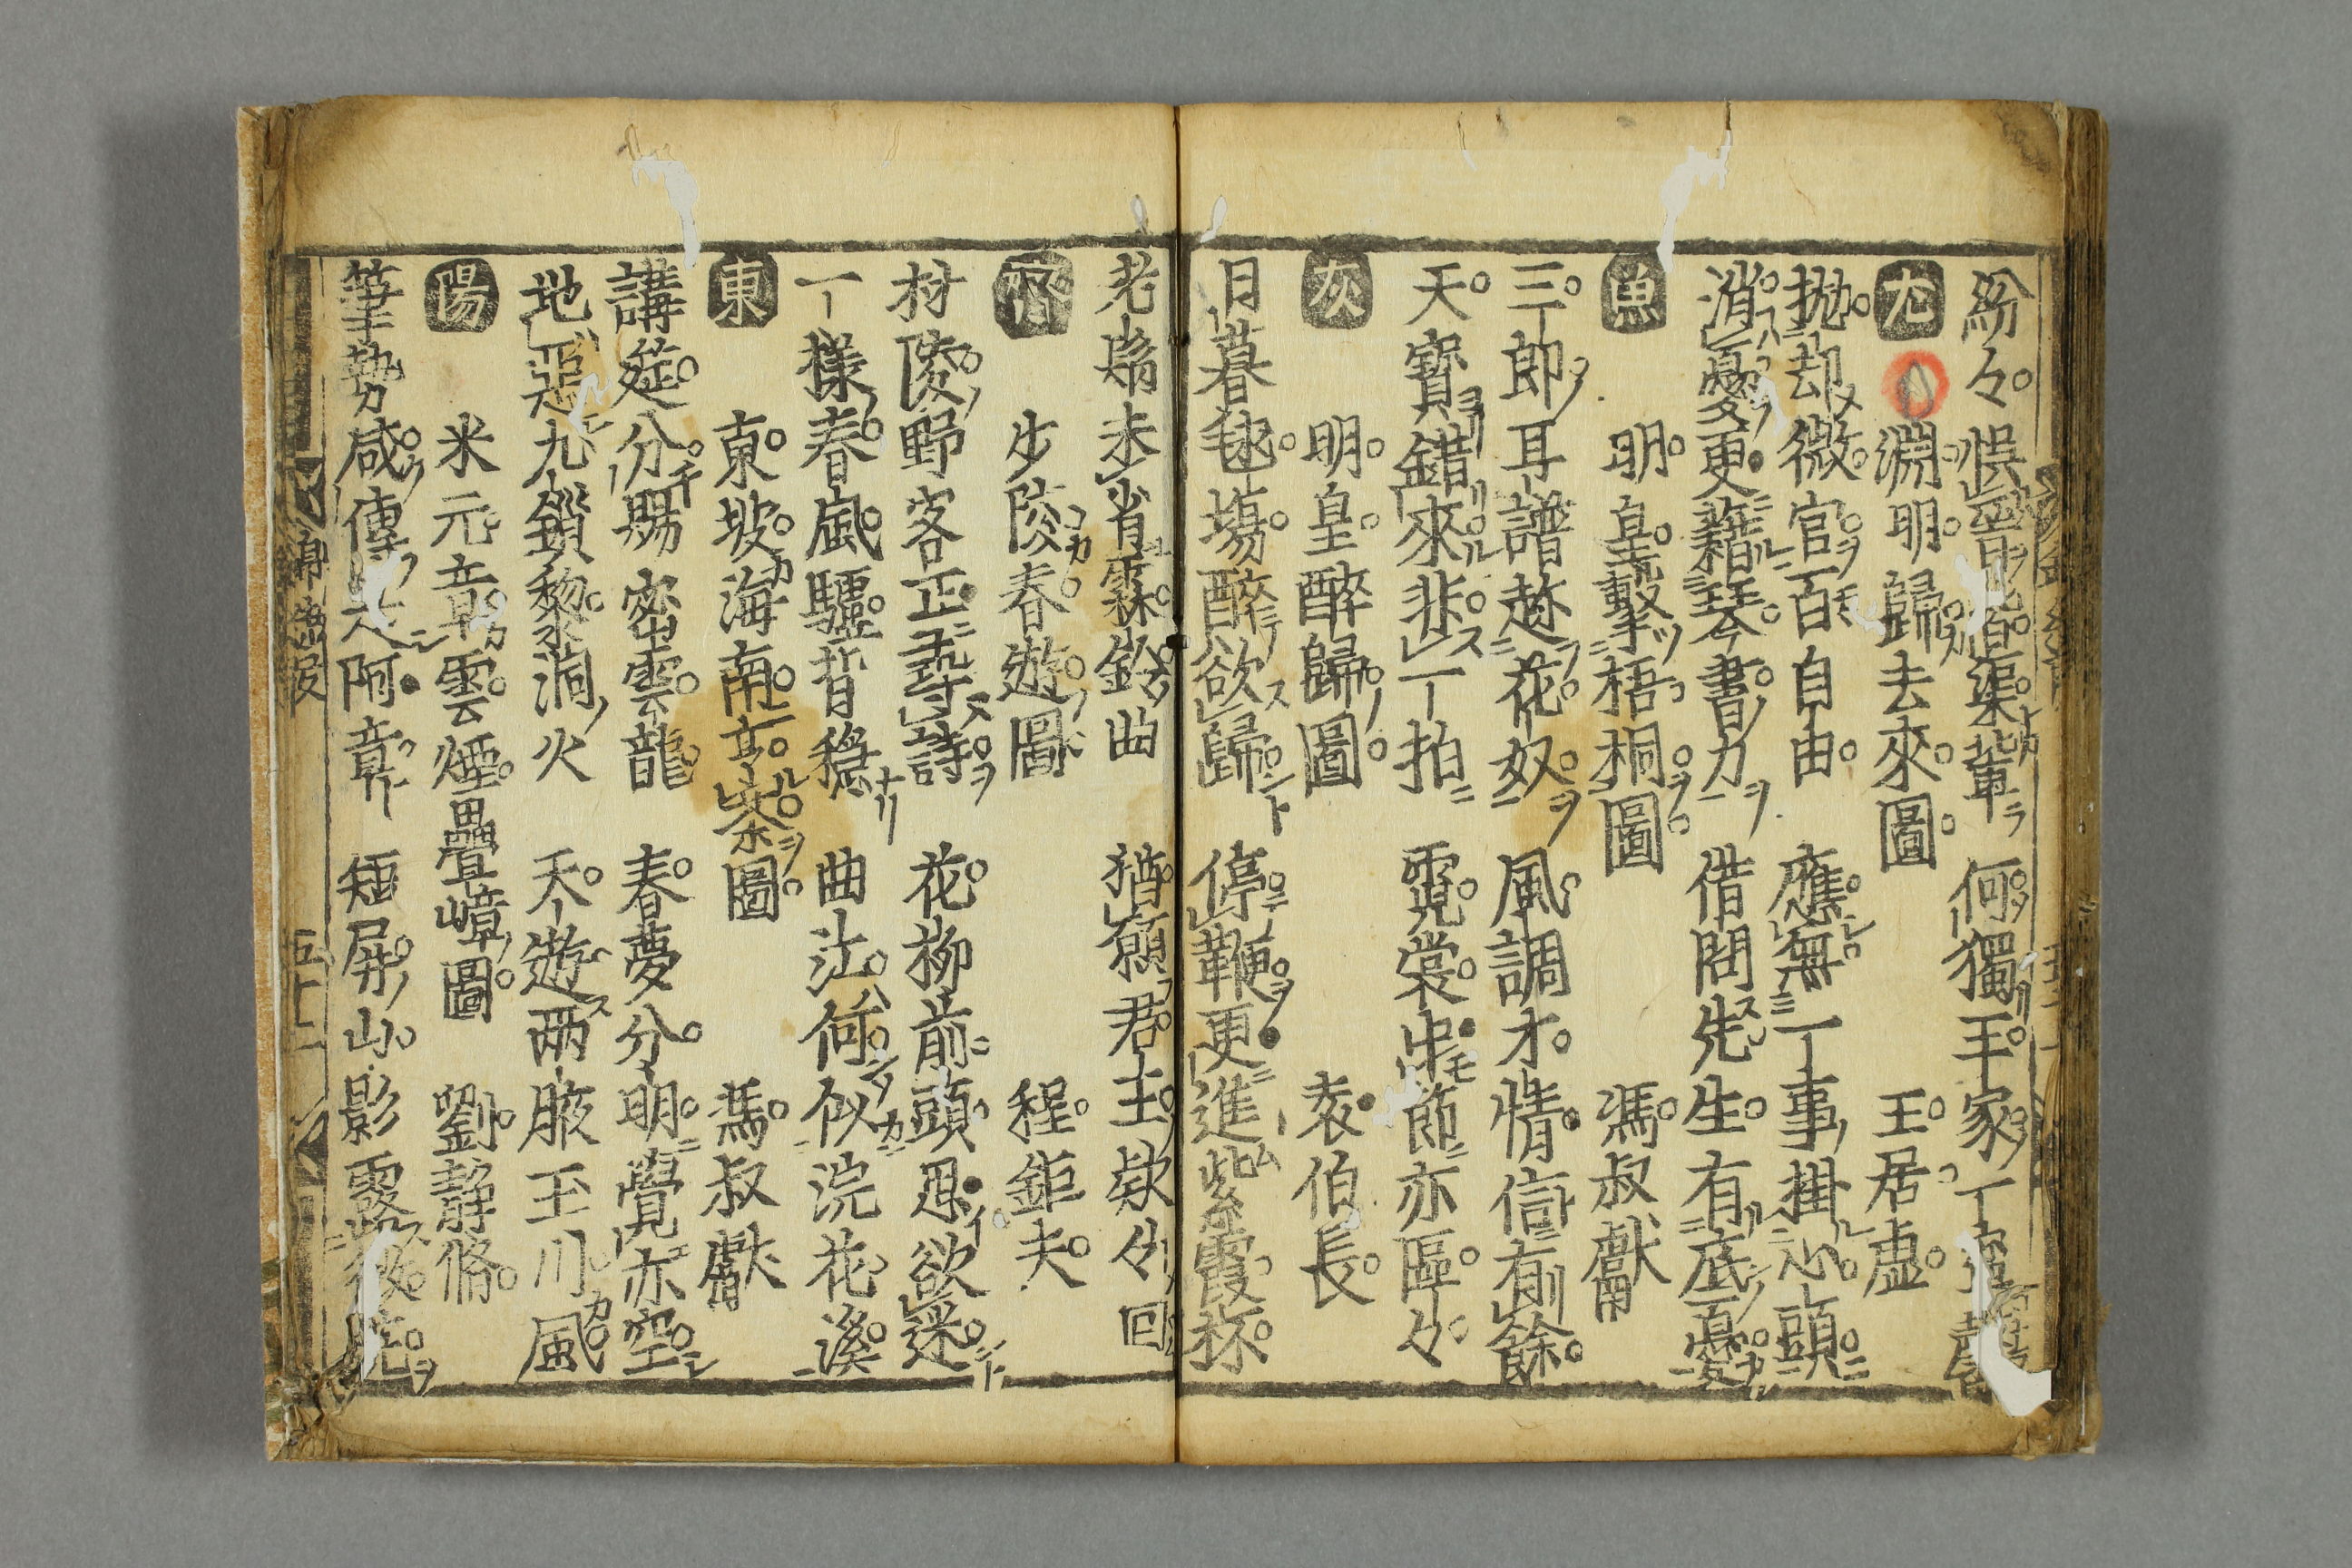 紛々悞晉惟渠輩　何獨王家一寧馨
尤　淵明歸去來圖　王居虚
抛却微官百自由　應無一事掛心頭
消憂更藉琴書力　借問先生有底憂
魚　明皇擊梧桐圖　馮叔獻
三郎耳譜趁花奴　風調才情信有餘
天寶錯來非一拍　霓裳中節亦區々
灰　明皇醉歸圖　袁伯長
日暮毬塲醉欲歸　停鞭更進紫霞杯
老　未省霖鈴曲　猶　君王欵々回
齊　少陵春遊圖　程鉅夫
村陵野客正尋詩　花柳前頭思欲迷
一樣春風驢背穩　曲江何似浣花溪
東　東坡海南烹茶圖　馮叔獻
講筵分賜密雲龍　春夢分明覺亦空
地惡九鑽黎洞火　天遊兩腋玉川風
陽　米元章雲煙疊嶂圖　劉静脩
筆勢咸傳是阿章　短屏山影露微